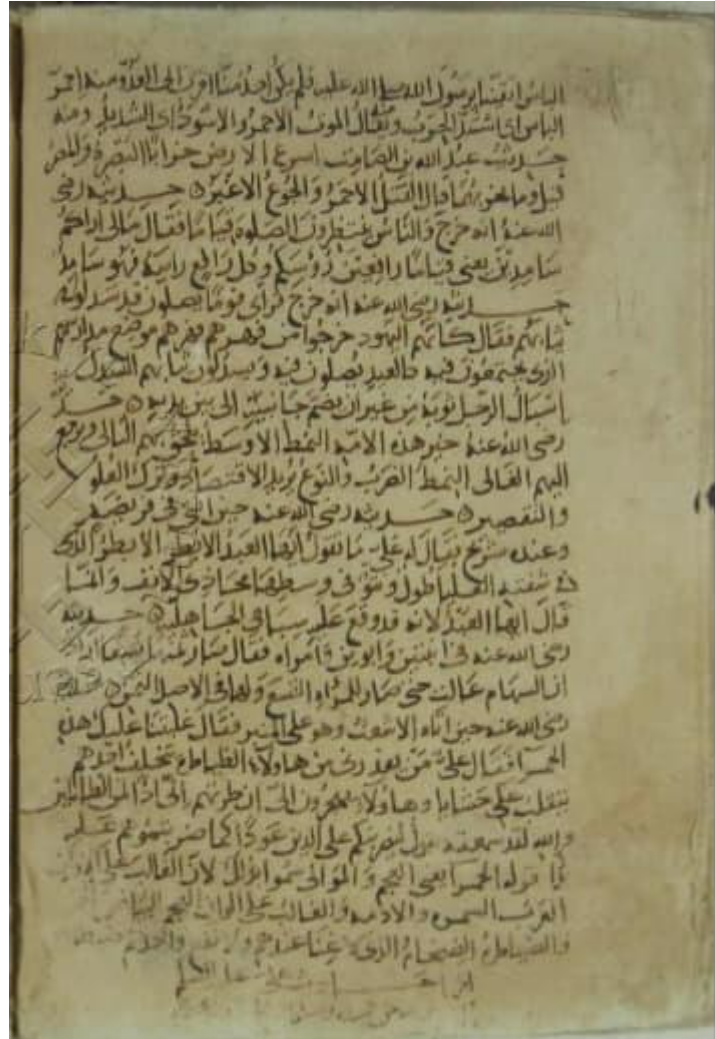 الباس اتقينا برسول الله صلى الله عليه فلم يكن احد منا اقرب الى العدو منه احمر
الباس اى اشتد الحرب ويقال الموت الاحمر والاسود اى الشديد ومنه
حديث عبد الله بن الصامت اسرع الارض خرابا البصرة ومصر
قيل وما يخربهما قال القتل الاحمر والجوع الاغبر حديثه رضى
الله عنه انه خرج والناس ينتظرون الصلوة قياما فقال مالى اراكم
سامدين يعنى قياما رافعين رؤسكم وكل رافع راسه فهو سامد
حديثه رضى الله عنه انه خرج فراى قوما يصلون قد سدلوا
ثيابهم فقال كانهم اليهود خرجوا من فهرهم فهرهم موضع مدراسهم
الذى يجتمعون فيه كالعيد يصلون فيه ويسدلون ثيابهم السدل
اسبال الرجل ثوبه من غير ان يضم جانبيه الى بين يديه
رضى الله عنه خير هذه الامة النمط الاوسط يلحق بهم التالى ويرجع
اليهم الغالى النمط الضرب والنوع يريد الاقتصاد وترك الغلو
والتقصير حديثه رضى الله عنه حين اتى فى فريضة
وعنده شريح فقال له على ما تقول ايها العبد الابظر الابظر الذى
فى شفته العليا طول ونتو فى وسطها محاذى الانف وانما
قال ايها العبد لانه قد وقع عليه سباء فى الجاهلية حديثه
رضى الله عنه فى ابنتين وابوين وامراة فقال صار ثمنها تسعا اراد
ان السهام عالت حتى صار للمراة التسع ولها فى الاصل الثمن
رضى الله عنه حين اتاه الاشعث وهو على المنبر فقال غلبتنا عليك هذه
الحمرا فقال على من يعذرنى من هاولاء الضياطرة يتخلف احدهم
يتقلب على حشاياه وهاولاء يهجرون الى ان طردتهم انى اذا لمن الظالمين
والله لقد سمعته يقول ليضربنكم على الدين عودا كما ضربتموهم عليه
بدءا قوله الحمرا يعنى العجم والموالى سموا بذلك لان الغالب على الوان
العرب السمرة والادمة والغالب على الوان العجم البياض
والضياطرة الضخام الذين لا غنا عندهم